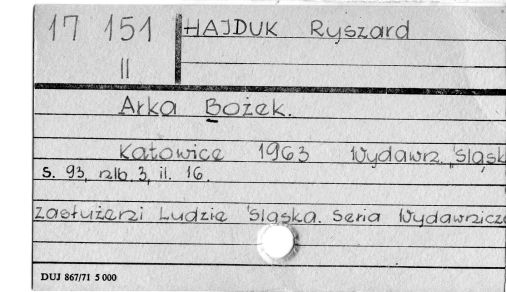 17 151 HAJDUK Ryszard
II
Arka Bożek.
Katowice 1963 Wydawn. "Śląsk
s. 93, nlb. 3, il. 16.
Zasłużeni Ludzie Śląska. Seria Wydawnicza
DUJ 867/71 5 000